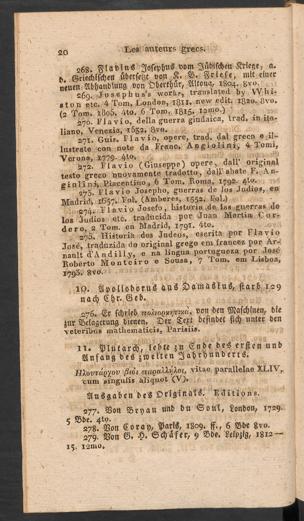 20 Les auteurs grecs.
268. Flavius Josephus vom Jüdischen Kriege, a.
d. Griechischen übersetzt von K. B. Friese, mit einer
neuen Abhandlung von Oberthür, Altona, 1804. 8vo.
269. Josephus's works, translated by Whi-
ston etc. 4 Tom. London, 1811. new edit. 1820. 8vo.
(2 Tom. 1806, 4to. 6 Tom. 1815, 12mo.)
270. Flavio, della guerra giudaica, trad. in ita-
liano, Venezia, 1552. 8vo.
271. Guis. Flavio, opere, trad. dal greco e il-
lustrate con note da Franc. Angiolini, 4 Tomi,
Verona, 1779. 4to.
272. Flavio (Giuseppe) opere, dall' original
testo greco nuovamente tradotto, dall' abate F. An-
giolini, Piacentino, 6 Tom. Roma, 1792. 4to.
273. Flavio Josepho, guerras de los Judios, en
Madrid, 1657. Fol. (Amberes, 1552. fol.)
274. Flavio Josefo, historia de las guerras de
los Judios etc. traducida por Juan Martin Cor-
dero, 2 Tom. en Madrid, 1791. 4to.
275. Historia dos Judeos, escrita por Flavio
José, traduzida do original grego em frances por Ar-
nault d'Andilly, e na lingua portugueza por José
Roberto Monteiro e Sousa, 7 Tom. em Lisboa,
1793. 8vo.
10. Apollodorus aus Damaskus, starb 129
nach Chr. Geb.
276. Er schrieb πολιορκητικα, von den Maschinen, die
zur Belagerung dienen. Der Text befindet sich unter den
veteribus mathematicis, Parisiis.
11. Plutarch, lebte zu Ende des ersten und
Anfang des zweiten Jahrhunderts.
Πλουταρχου βιοι παραλληλοι, vitae parallelae XLIV,
cum singulis aliquot (V).
Ausgaben des Originals. Editions.
277. Von Bryan und du Soul, London, 1729.
5 Bde. 4to.
278. Von Coray, Paris, 1809. ff., 6 Bde 8vo.
279. Von G. H. Schäfer, 9 Bde. Leipzig, 1812—
15. 12mo.